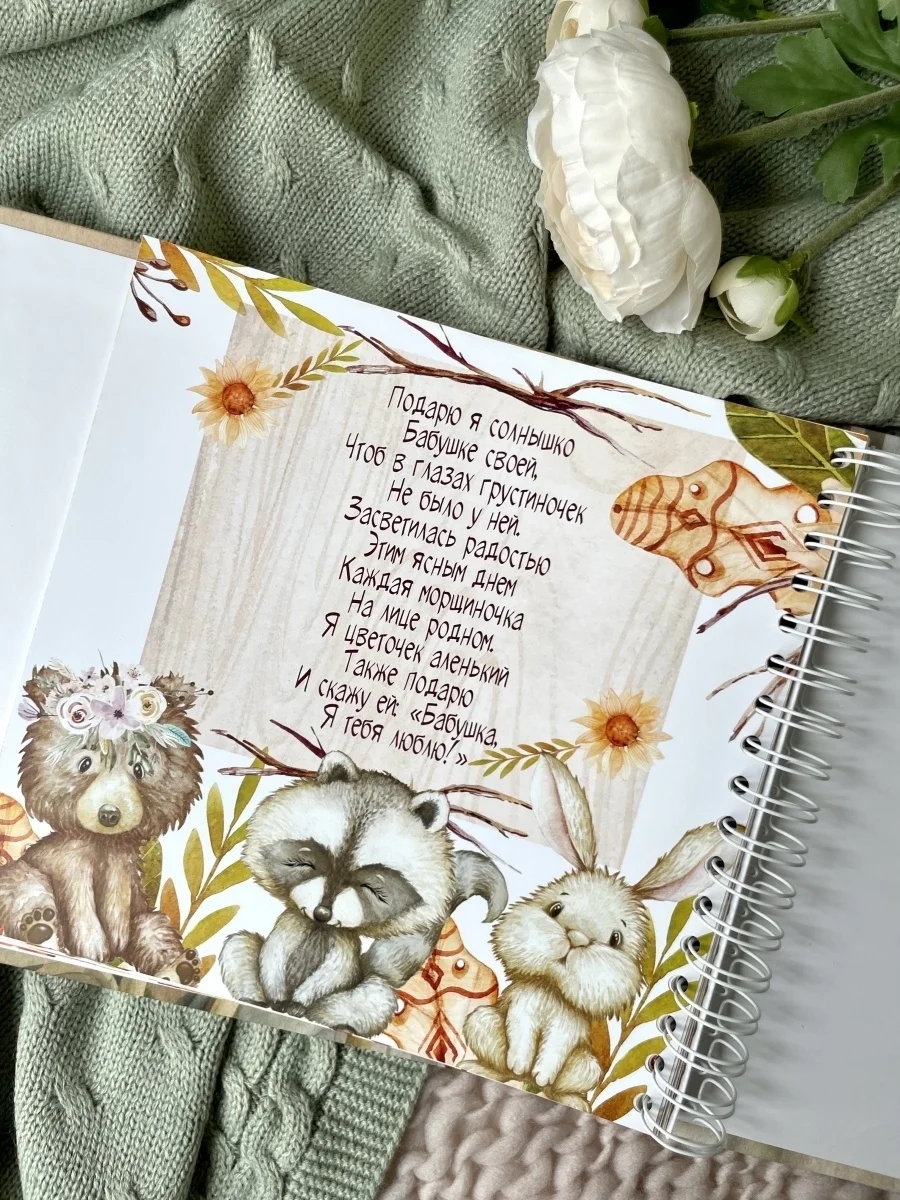 Подарю я солнышко
Бабушке своей,
Чтоб в глазах грустиночек
Не было у ней.
Засветилась радостью
Этим ясным днем
Каждая морщиночка
На лице родном.
Я цветочек аленький
Также подарю
И скажу ей: «Бабушка,
Я тебя люблю!»